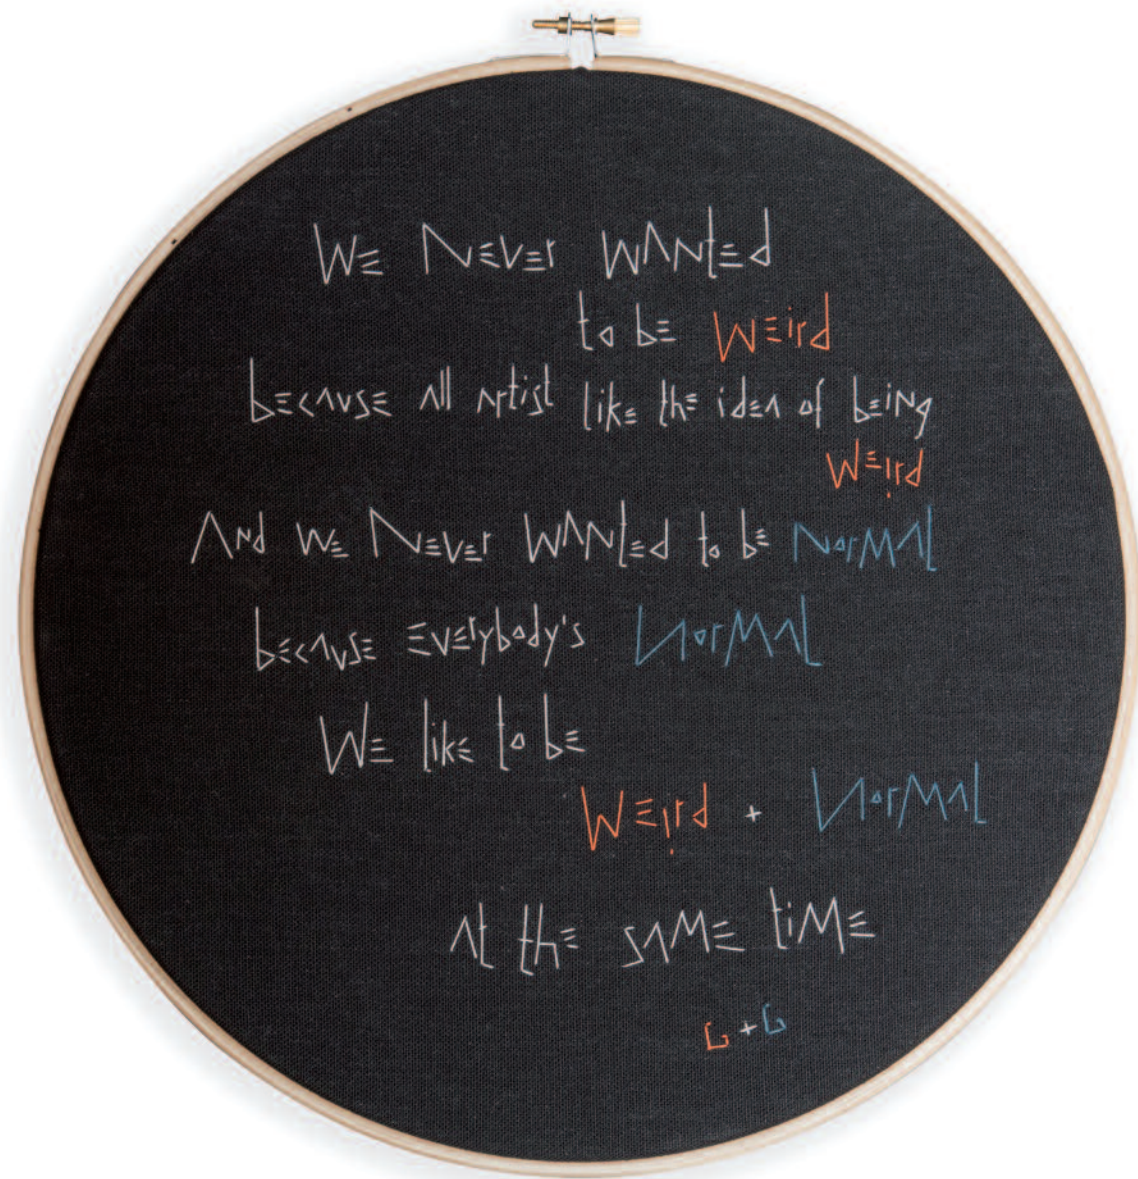 WE NEVEr WANtEd
to bE WEird
bEcAuSE All Artist likE thE idEA of bEiNg
WEird
ANd WE NEVEr WANtEd to bE NorMAl
bEcAuSE EVErybody's NorMAl
WE likE to bE
WEird + NorMAl
At thE SAME tiME
G + G